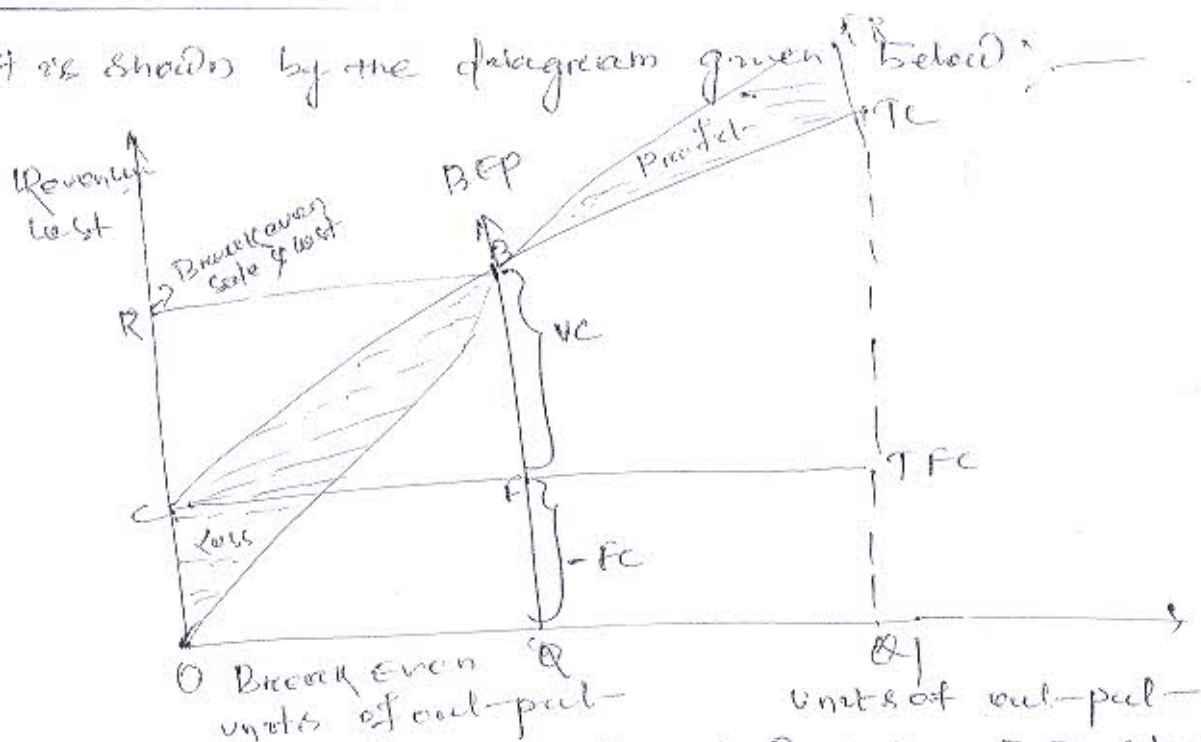 it is shown by the diagram given below :—
TR
TC
Revenue
Cost
BEP
Profit
Break even
sale & cost
B
R
VC
C
F
TFC
Loss
FC
O
Q
Q1
Break Even
units of out-put
units of out-put